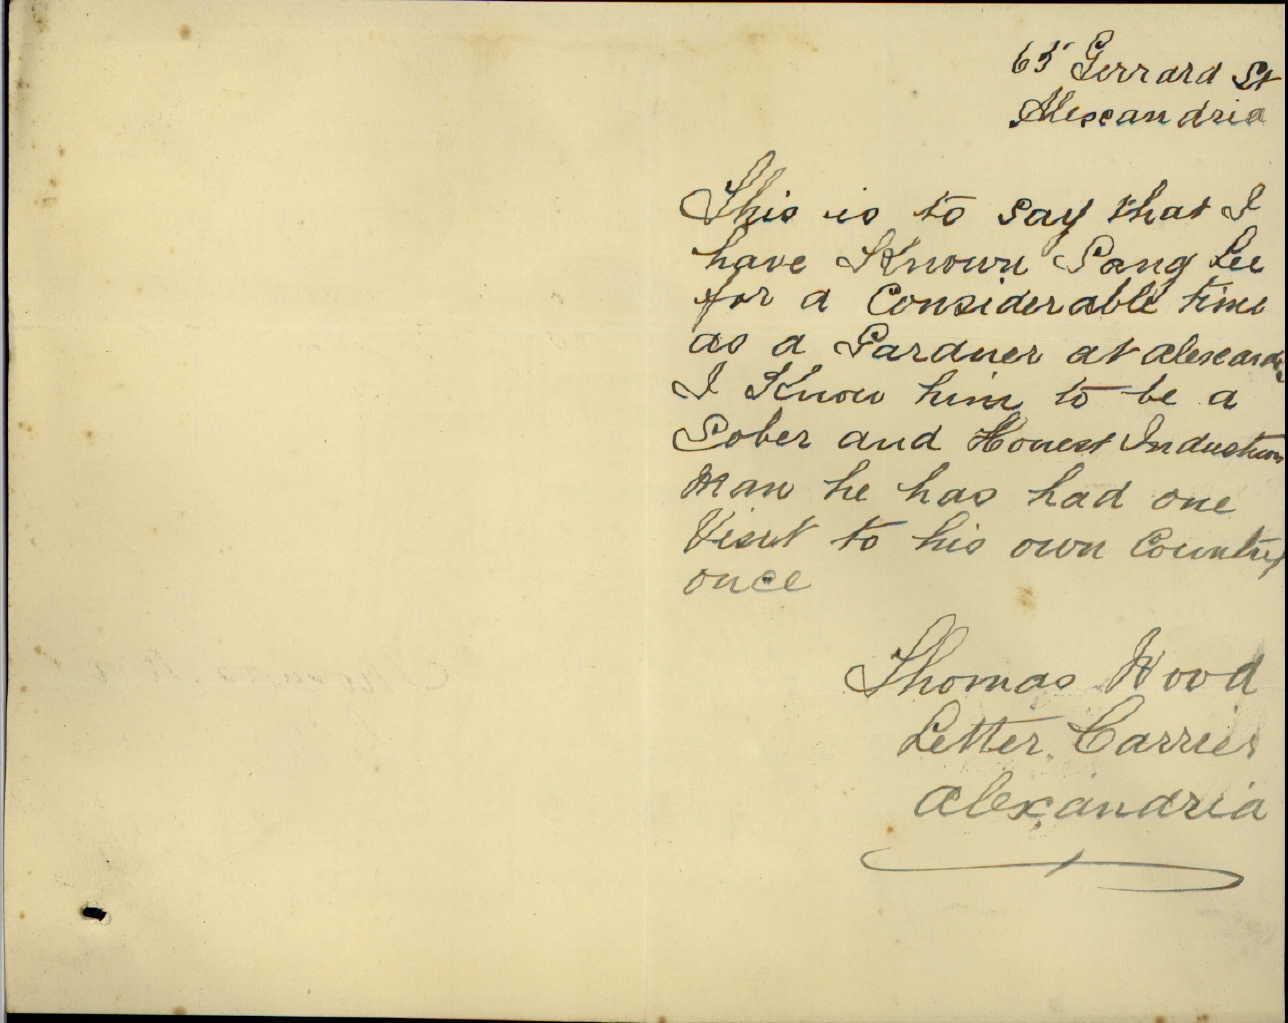 65 Gerrard St
Alexandria
This is to say that I
have Known Sang Lee
for a Considerable time
as a Gardner at alexandria
I Know him to be a
Sober and Honest Industrious
man he has had one
Visit to his own Country
once
Thomas Wood
Letter Carrier
Alexandria